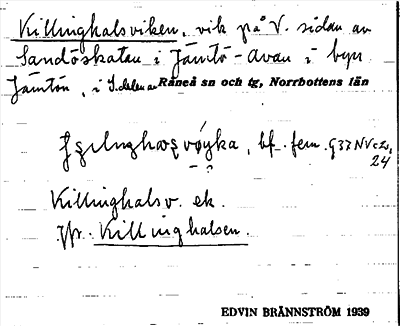 Killinghalsviken, vik på V. sidan av
Sandöskatan i Jämtö-Avan i byn
Jämtön, i S. delen av Råneå sn och tg, Norrbottens län
bf. fem. G33NVc2,
24
Killinghalsv. ek.
Jfr. Killinghalsen.
EDVIN BRÄNNSTRÖM 1939